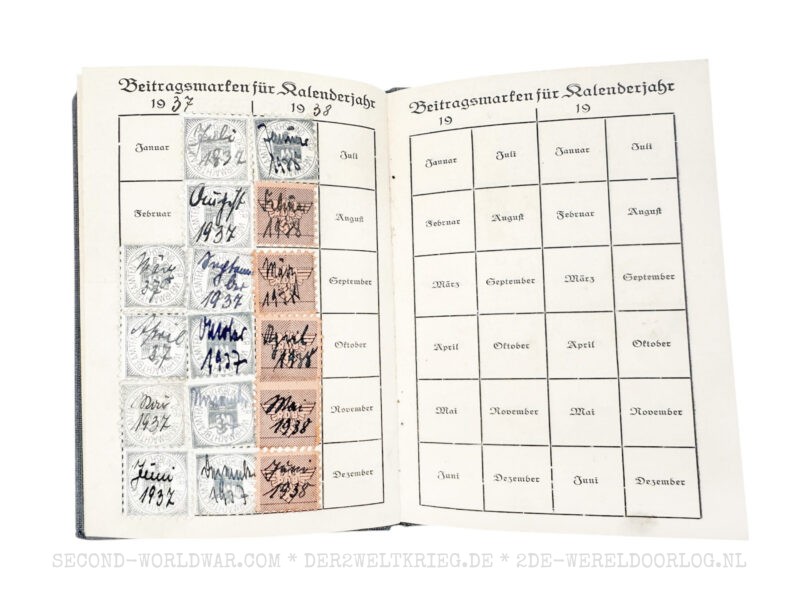 Beitragsmarken für Kalenderjahr
1937 1938
Januar Juli 1937 Januar 1938 Juli
Februar August 1937 Februar 1938 August
März 37 1937 März 1938 September
April 37 Oktober 1937 April 1938 Oktober
Mai 1937 November 37 Mai 1938 November
Juni 1937 Dezember 1937 Juni 1938 Dezember
Beitragsmarken für Kalenderjahr
19 19
Januar Juli Januar Juli
Februar August Februar August
März September März September
April Oktober April Oktober
Mai November Mai November
Juni Dezember Juni Dezember
SECOND-WORLDWAR.COM * DER2WELTKRIEG.DE * 2DE-WERELDOORLOG.NL